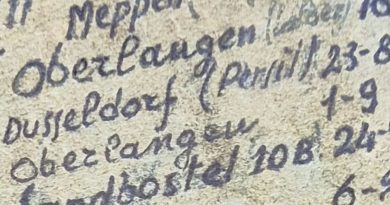 11 Meppen 10
Oberlangen
Dusseldorf (Persil) 23-8
Oberlangen 1-9
Sandbostel 10B 24
6-